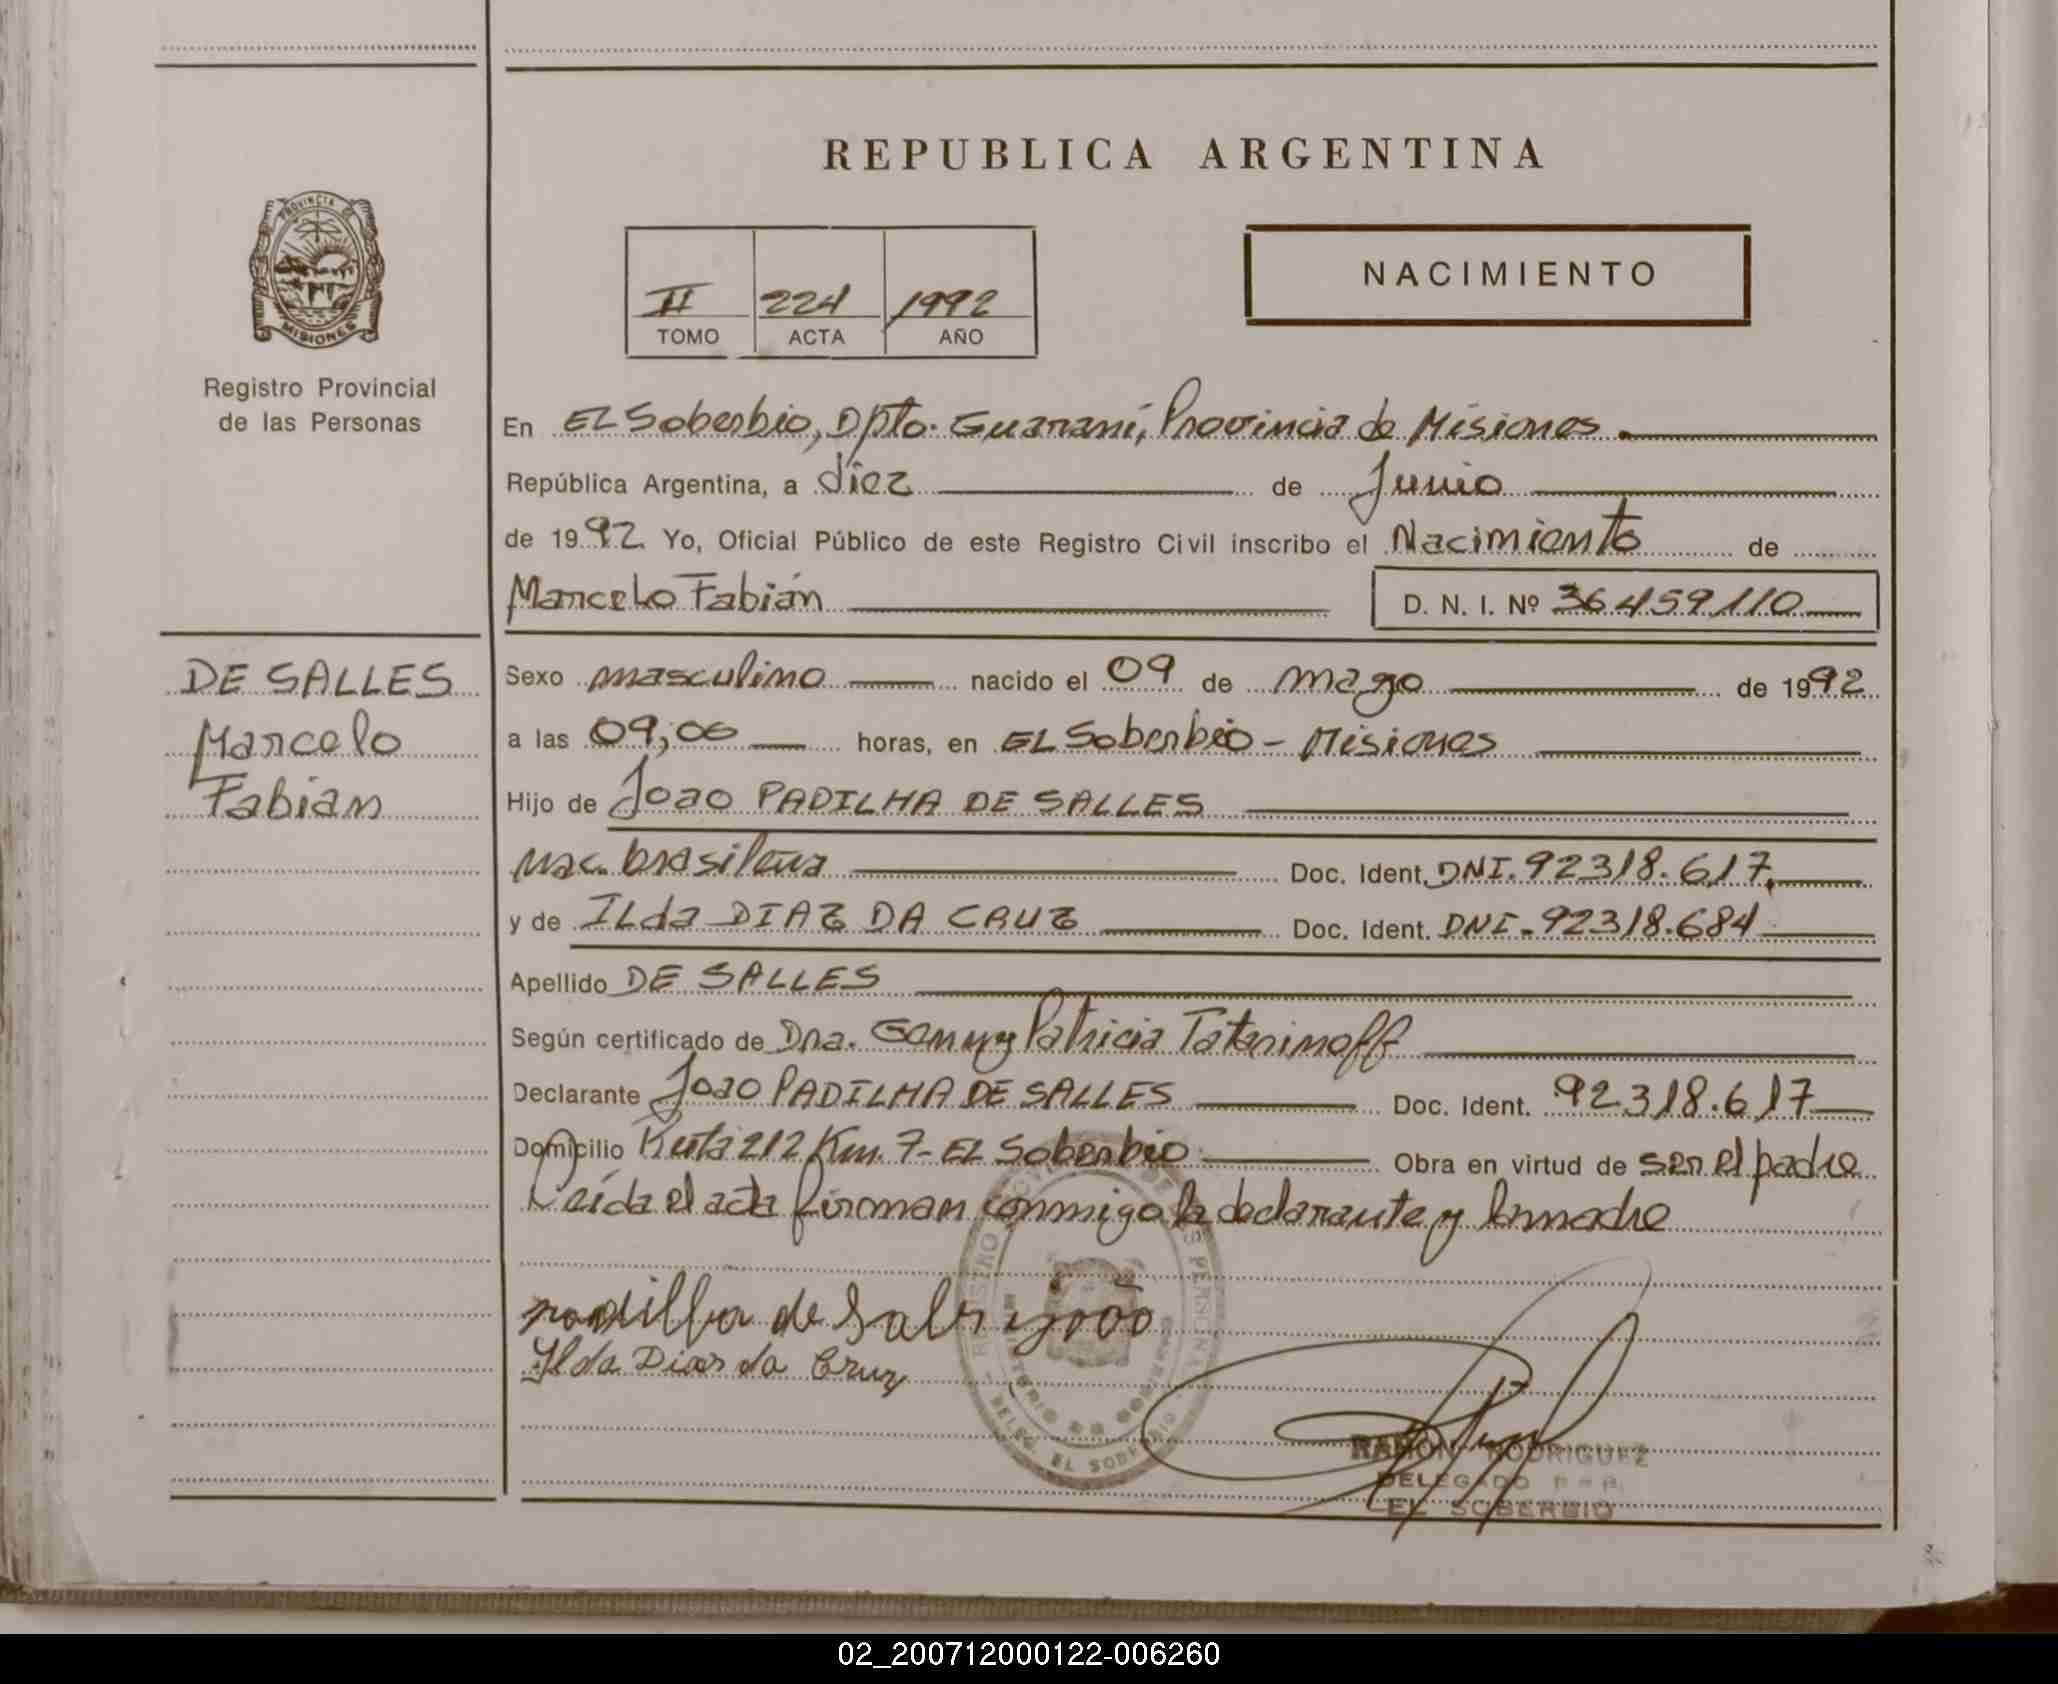 REPUBLICA ARGENTINA
PROVINCIA DE
MISIONES
Registro Provincial
de las Personas
II 224 1992
TOMO ACTA AÑO
NACIMIENTO
En EL Soberbio, Dpto. Guaraní, Provincia de Misiones.
República Argentina, a diez de Junio
de 1992 Yo, Oficial Público de este Registro Civil inscribo el Nacimiento de
Marcelo Fabián D. N. I. Nº 36459110
DE SALLES
Marcelo
Fabian
Sexo masculino nacido el 09 de mayo de 1992
a las 09,00 horas, en EL Soberbio - Misiones
Hijo de Joao PADILHA DE SALLES
nac. brasileña Doc. Ident. DNI. 92318.617.
y de ILda DIAZ DA CRUZ Doc. Ident. DNI. 92318.684
Apellido DE SALLES
Según certificado de Dra. Genny Patricia Tatarinoff
Declarante Joao PADILHA DE SALLES Doc. Ident. 92.318.617
Domicilio Ruta 212 Km. 7 - EL Soberbio Obra en virtud de ser el padre
Leída el acta firman conmigo la declarante y la madre
padilha de Sales joão
Ilda Dias da Cruz
RAMON RODRIGUEZ
DELEGADO
EL SOBERBIO
02_200712000122-006260